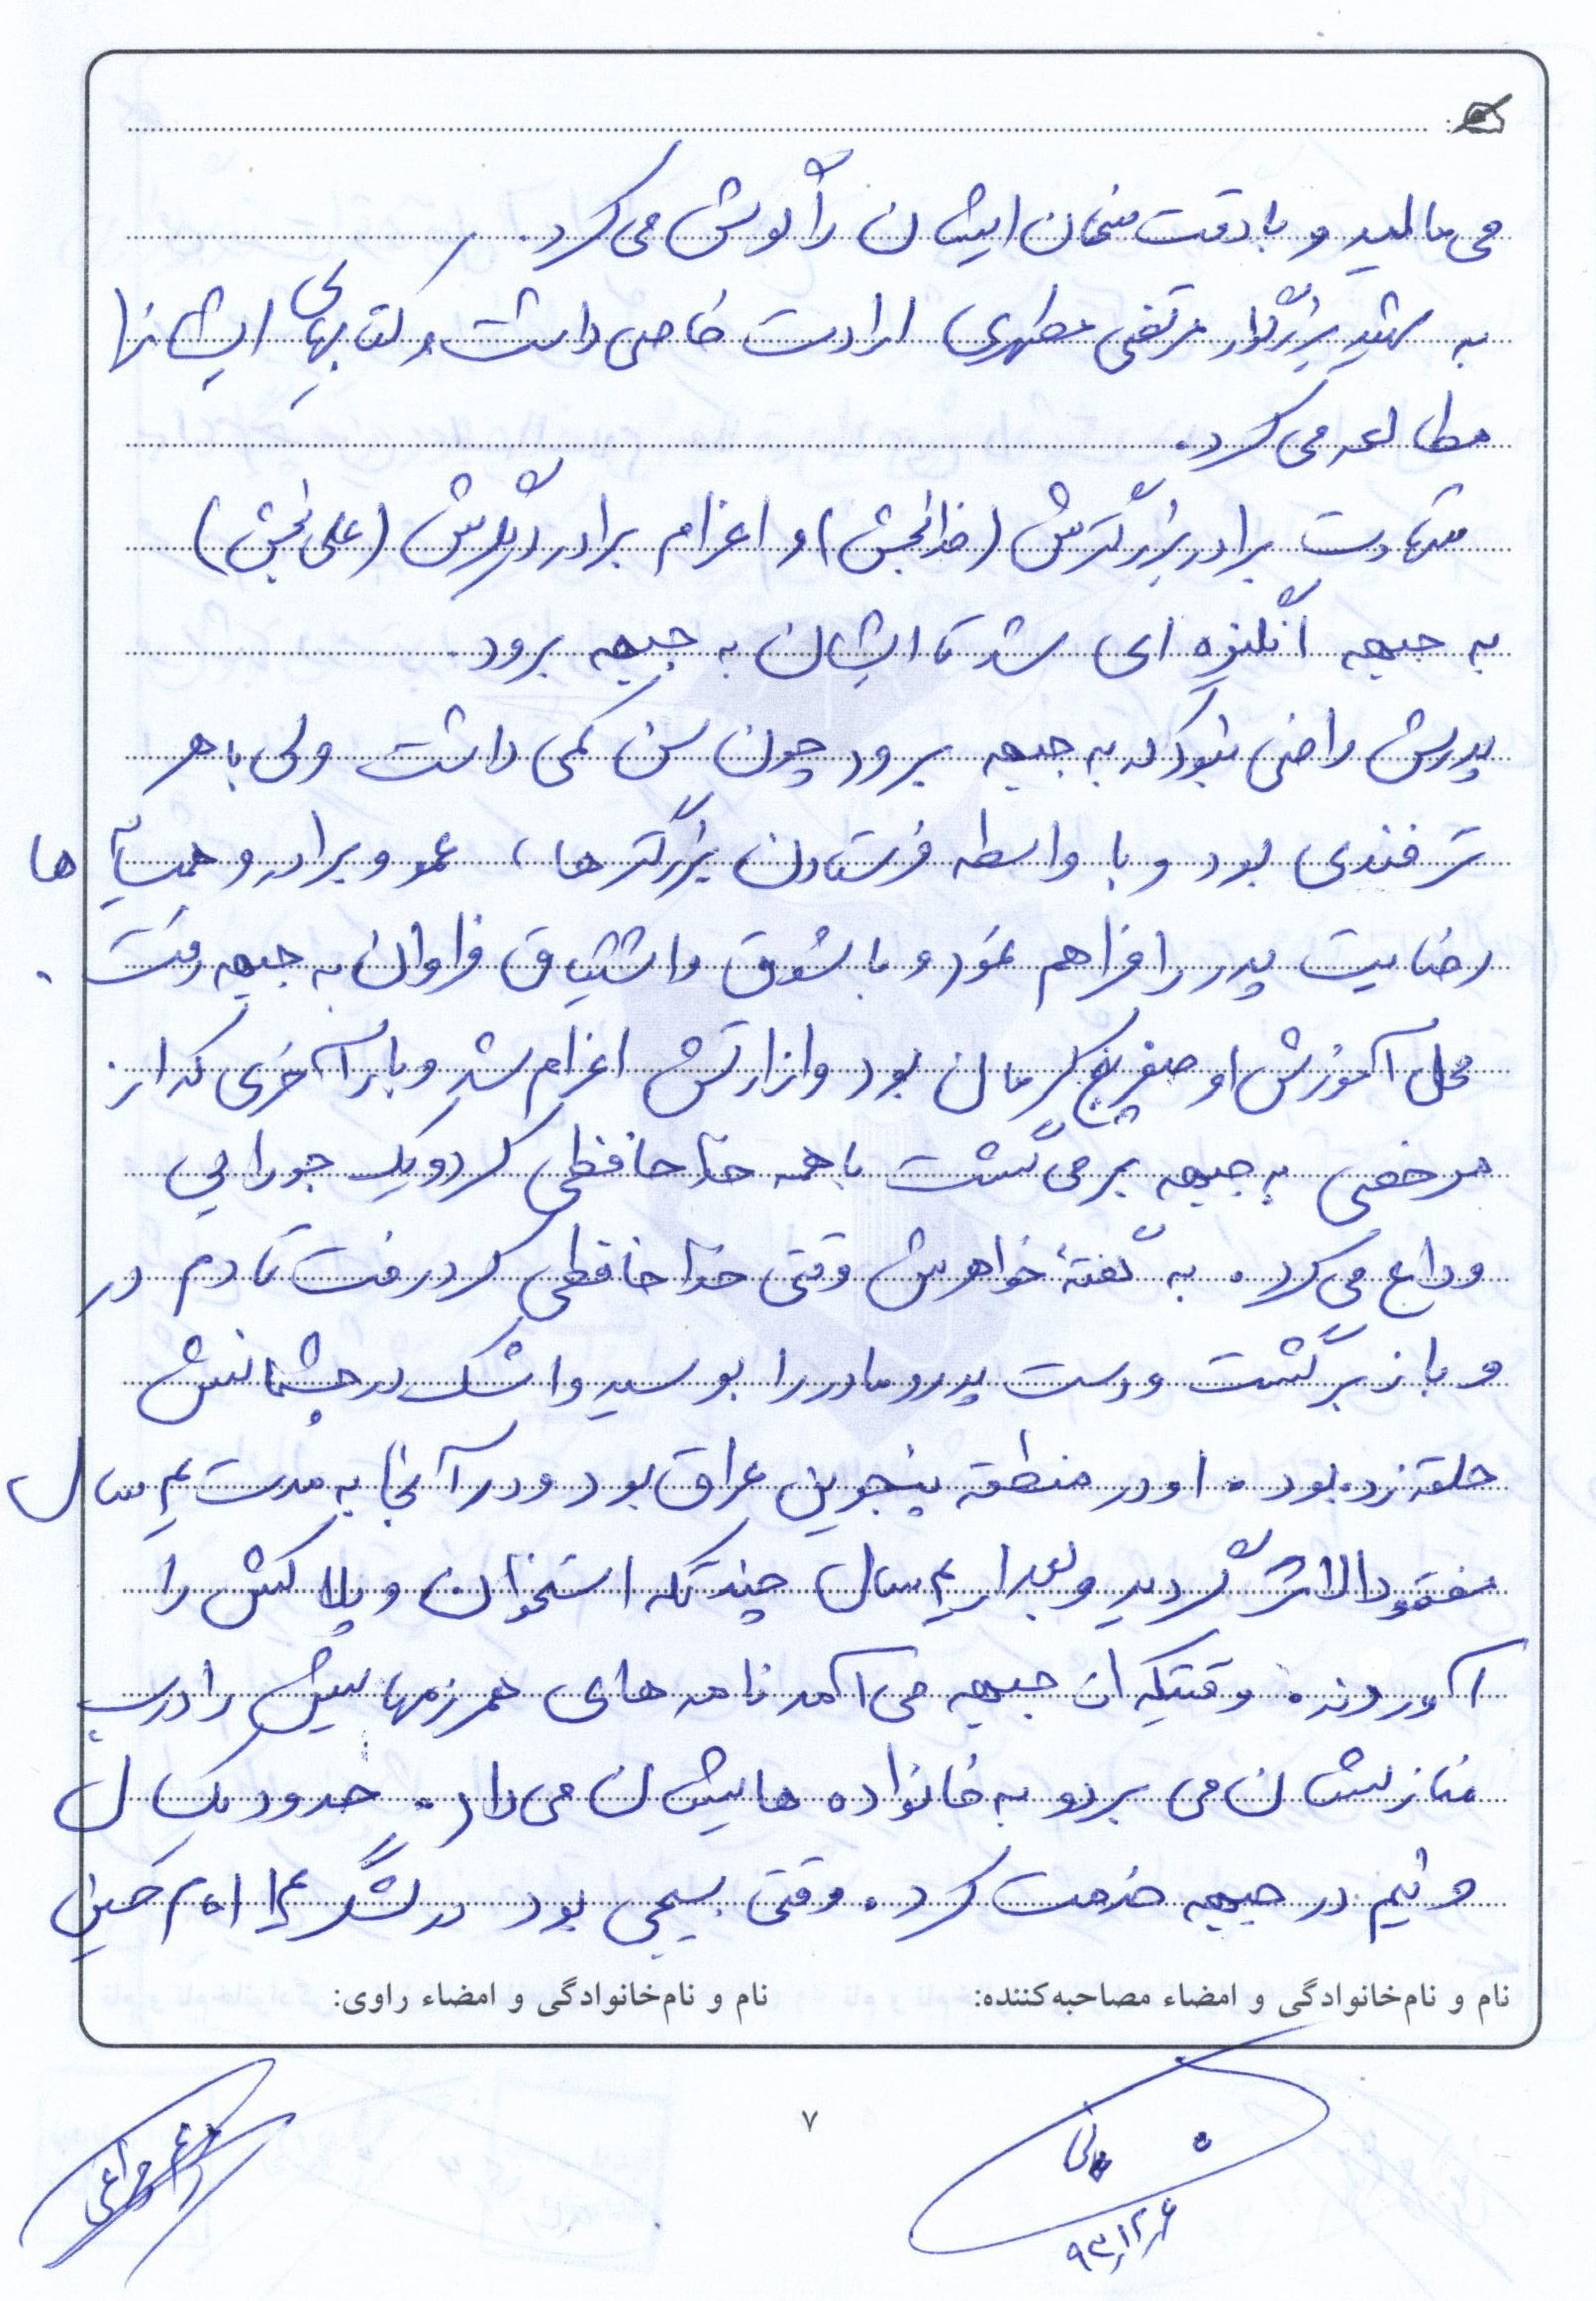 می مالید و با دقت سخنان ایشان را گوش می کرد.
به شهید بزرگوار مرتضی مطهری ارادت خاصی داشت و کتابهای ایشان را
مطالعه می کرد.
شهادت برادر بزرگترش (خدابخش) و اعزام برادر دیگرش (علی بخش)
به جبهه انگیزه ای شد تا ایشان به جبهه برود.
پدرش راضی نبود که به جبهه برود چون سن کمی داشت ولی با هر
ترفندی بود و با واسطه فرستادن بزرگترها، عمو و برادر و همسایه ها
رضایت پدر را فراهم نمود و با شوق و اشتیاق فراوان به جبهه رفت.
محل آموزش او صفر پنج کرمان بود و از ارتش اعزام شد و بار آخری که از
مرخصی به جبهه برمی گشت با همه خداحافظی کرد و یک جورایی
وداع می کرد. به گفتهٔ خواهرش وقتی خداحافظی کرد رفت تا دم در
و باز برگشت و دست پدر و مادر را بوسید و اشک در چشمانش
حلقه زده بود. او در منطقه پنجوین عراق بود و در آنجا به مدت سال
مفقودالاثر گردید و بعد از سال چند تکه استخوان و پلاکش را
آوردند. وقتیکه از جبهه می آمد نامه های همرزمهایش را درب
منازلشان می برد و به خانواده هایشان می داد. حدود یکسال
و نیم در جبهه خدمت کرد. وقتی بسیجی بود در لشگر ۱۴ امام حسین
نام و نام‌خانوادگی و امضاء مصاحبه‌کننده: نام و نام‌خانوادگی و امضاء راوی:
۷